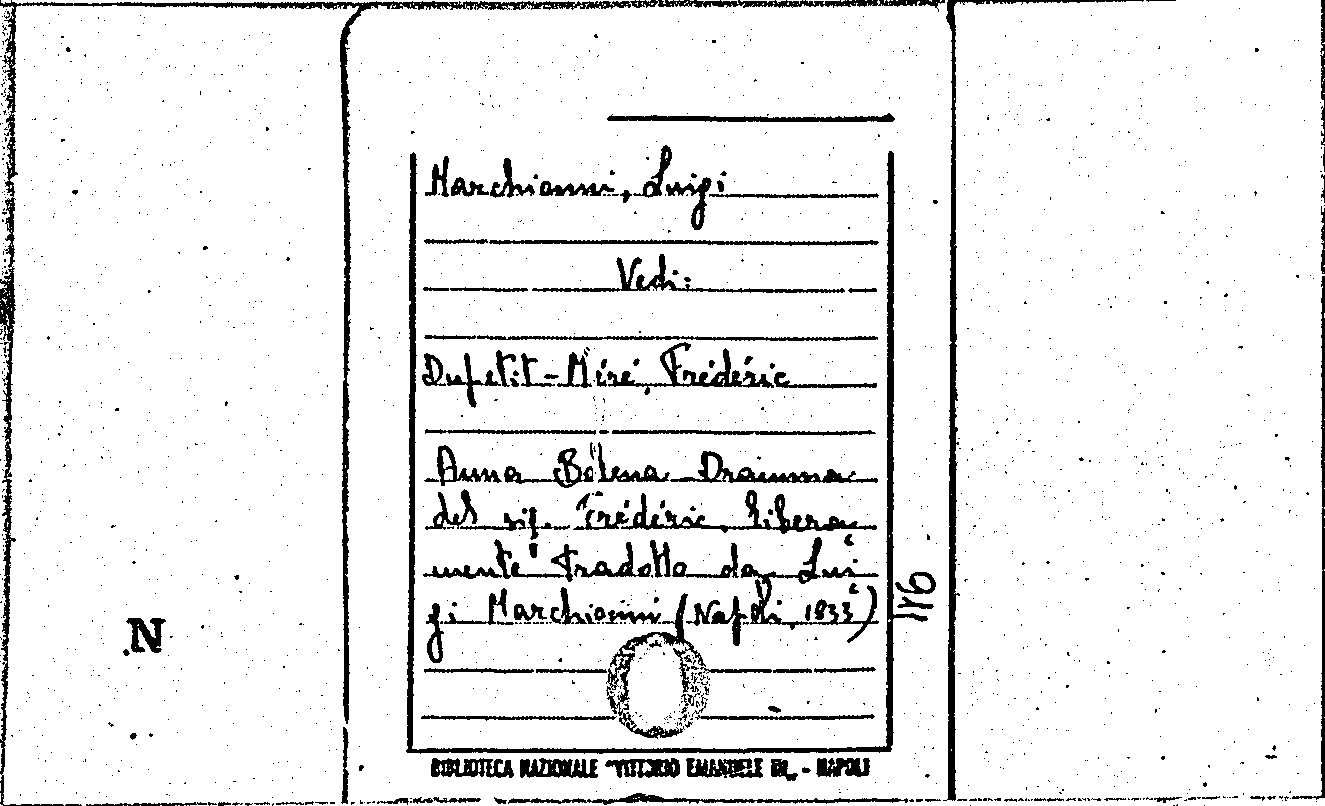 Marchionni, Luigi
Vedi:
Dupetit-Méré, Frédéric
Anna Bolena. Dramma
del sig. Frédéric, libera
mente tradotto da Lui
gi Marchionni (Napoli, 1833)
116
N
BIBLIOTECA NAZIONALE "VITTORIO EMANUELE III" - NAPOLI